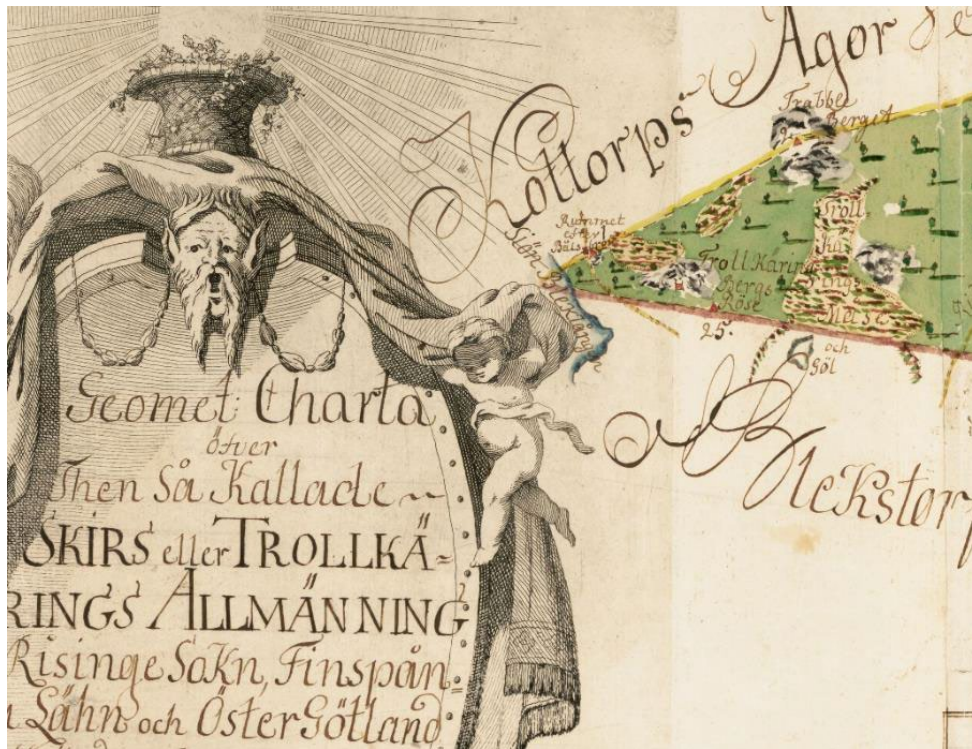 Geomet: Charta
öfver
Then Så Kallade ~
SKIRS eller TROLLKÄ=
RINGS ALLMÄNNING
Risinge Sokn, Finspån=
Lähn och Öster Götland
Kottorps Ägor
Trabble
Berget
Rummet
efter
Troll Karings
Bergs
Röse
25.
Troll
Kä
rings
Måse
och
Göl
Blekstorp